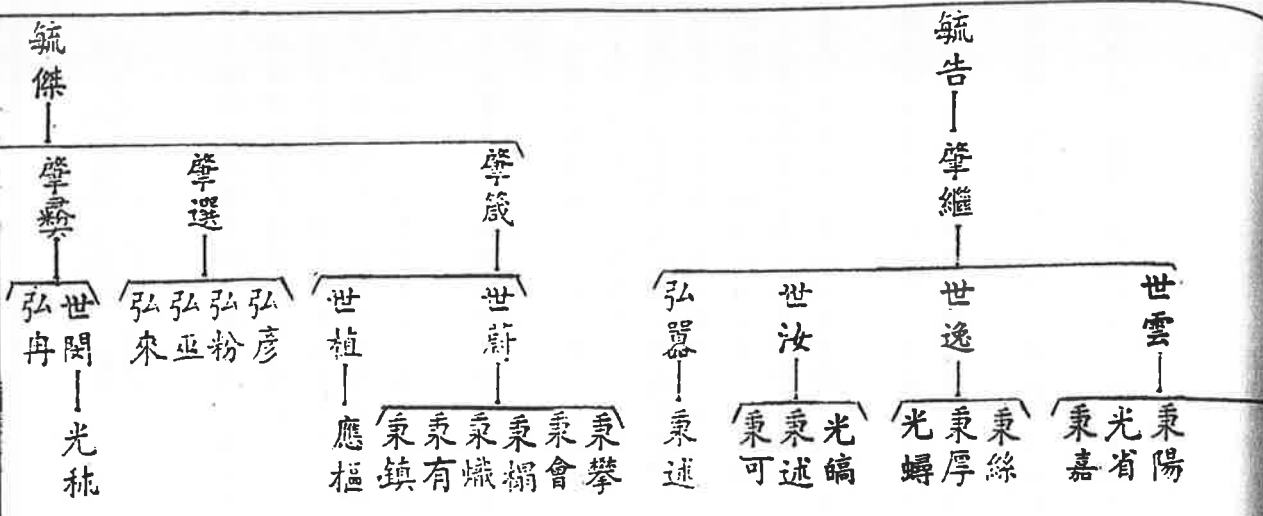 毓告
肇繼
世雲
秉陽
光省
秉嘉
世逸
秉絲
秉厚
光蟳
世汝
光皜
秉述
秉可
弘嚣
秉述
毓傑
肇箴
世蔚
秉攀
秉會
秉榻
秉熾
秉有
秉鎮
世植
應樞
肇選
弘彥
弘粉
弘巫
弘來
肇
世閔
光秫
弘冉